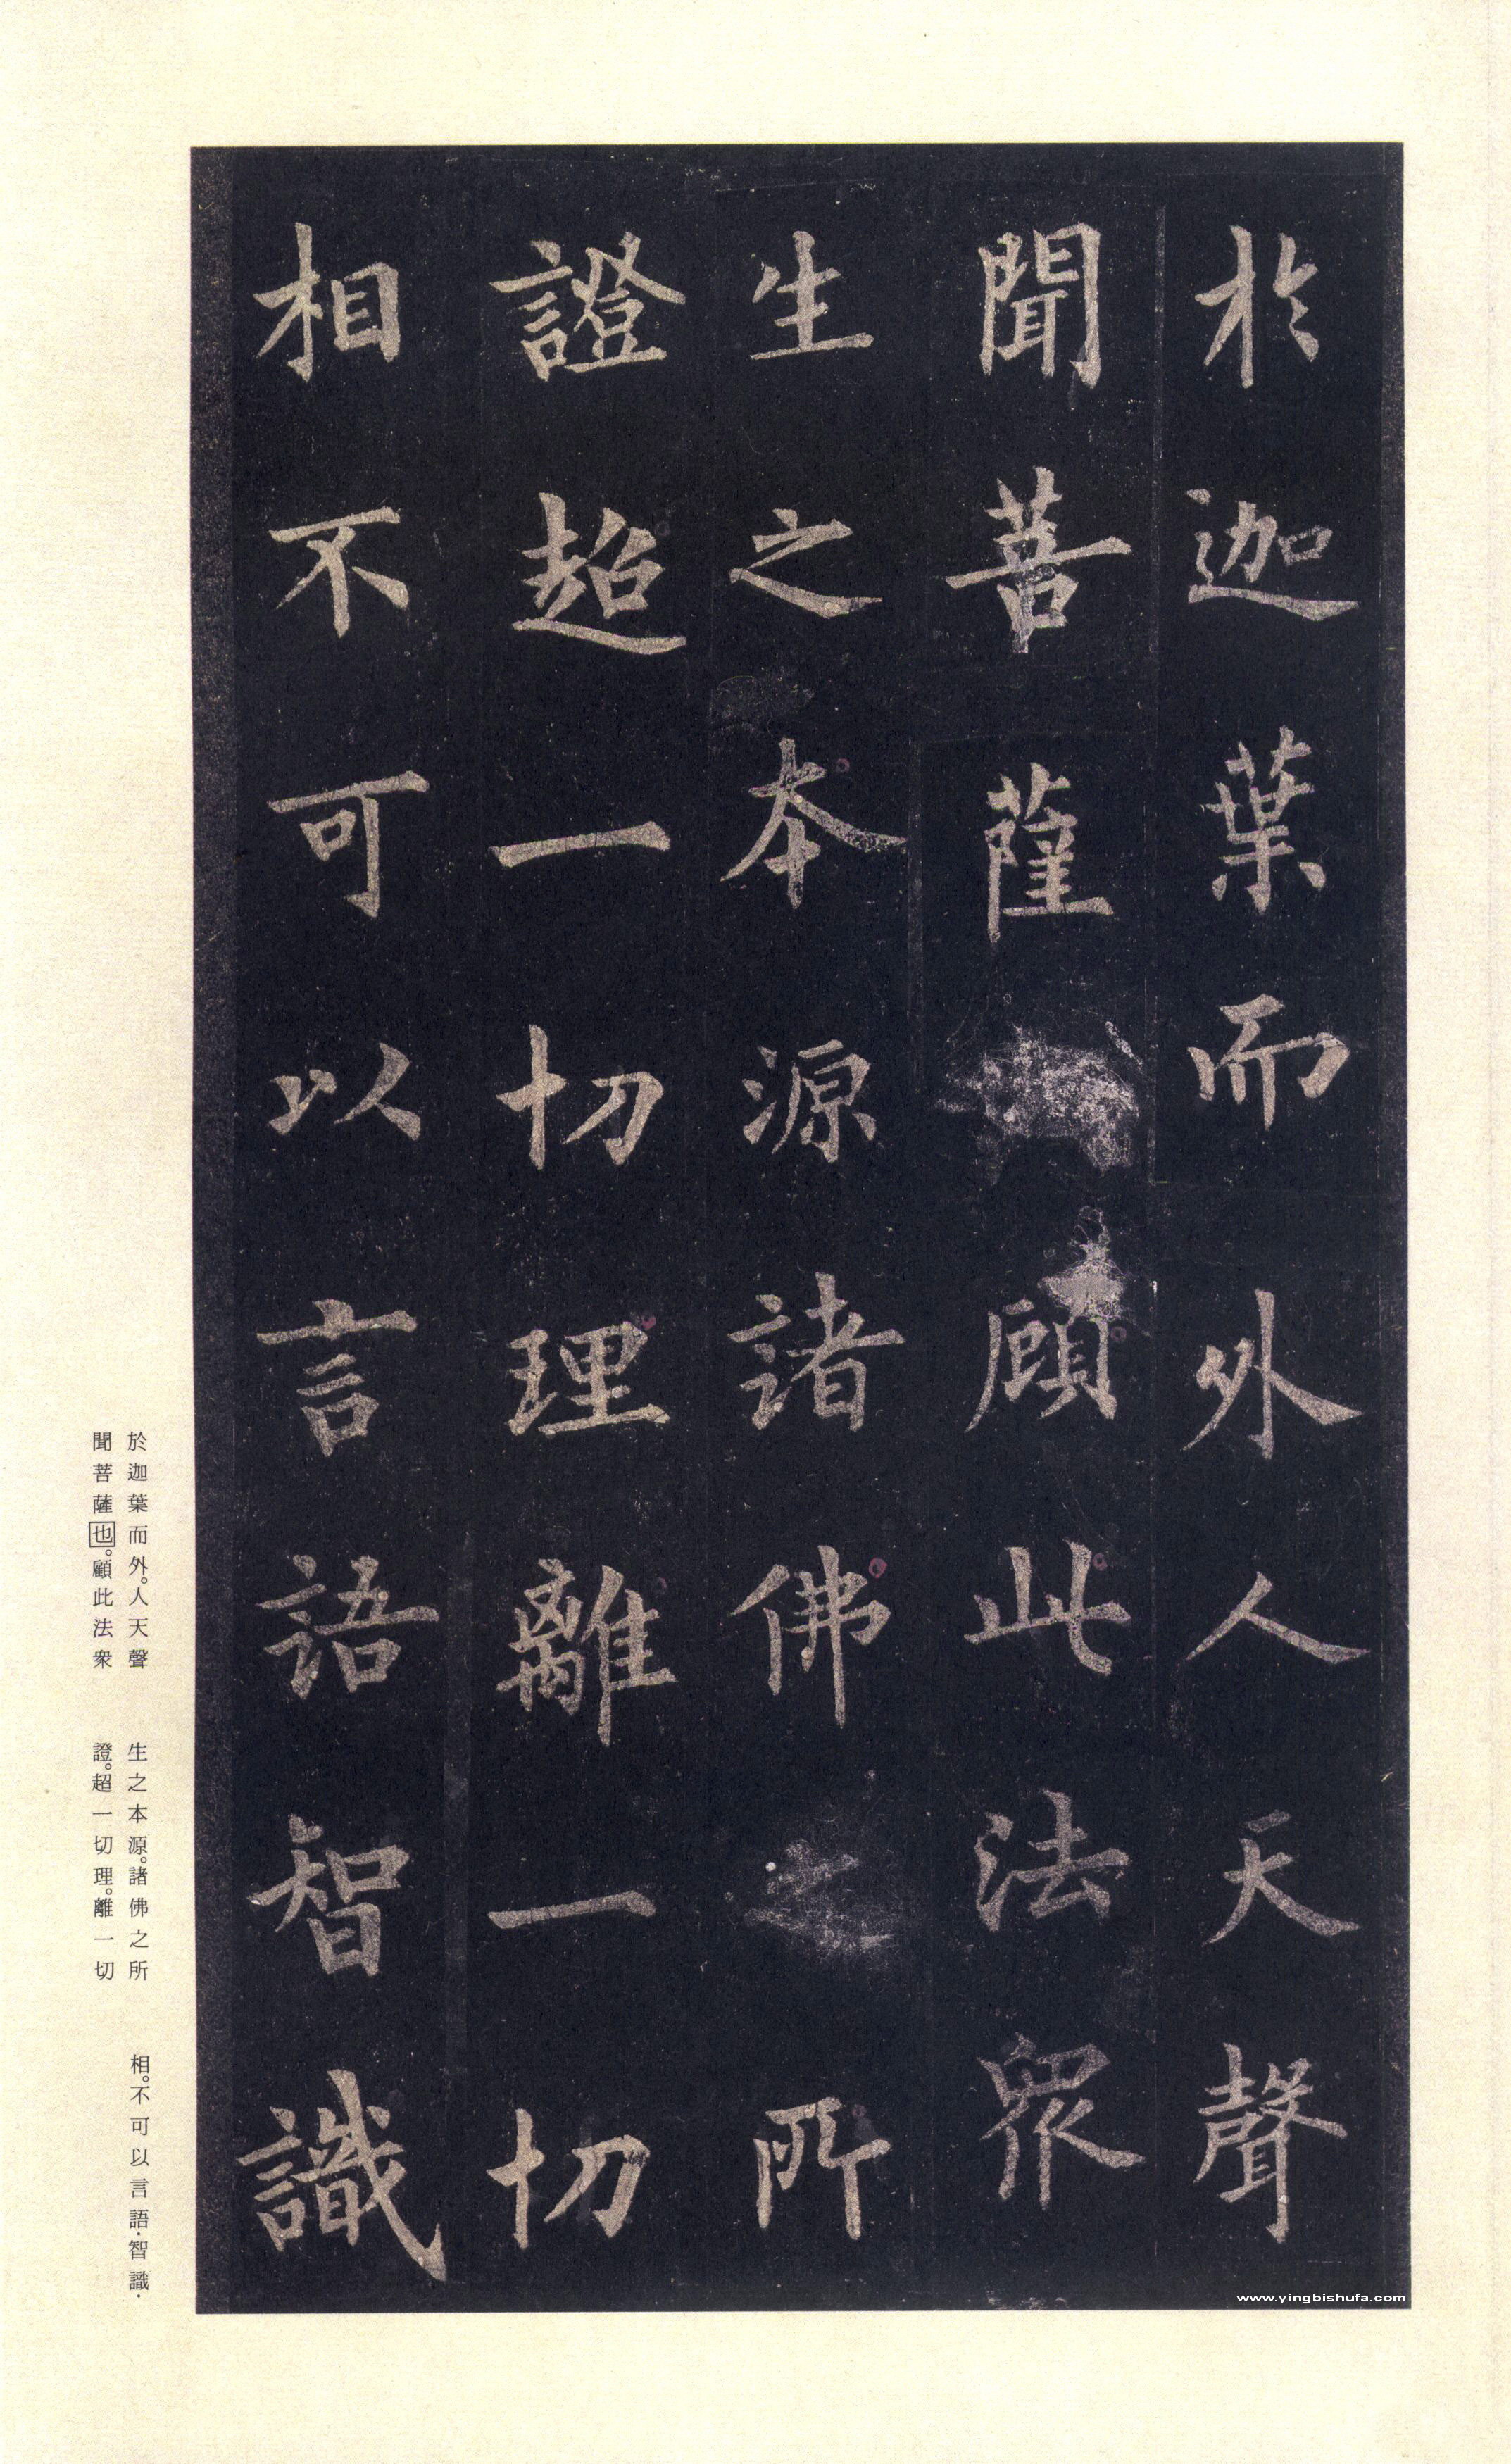 於迦葉而外人天聲
聞菩薩顧此法衆
生之本源諸佛所
證超一切理離一切
相不可以言語智識
於迦葉而外。人天聲
聞菩薩也。顧此法衆
生之本源。諸佛之所
證。超一切理。離一切
相。不可以言語·智識·
www.yingbishufa.com